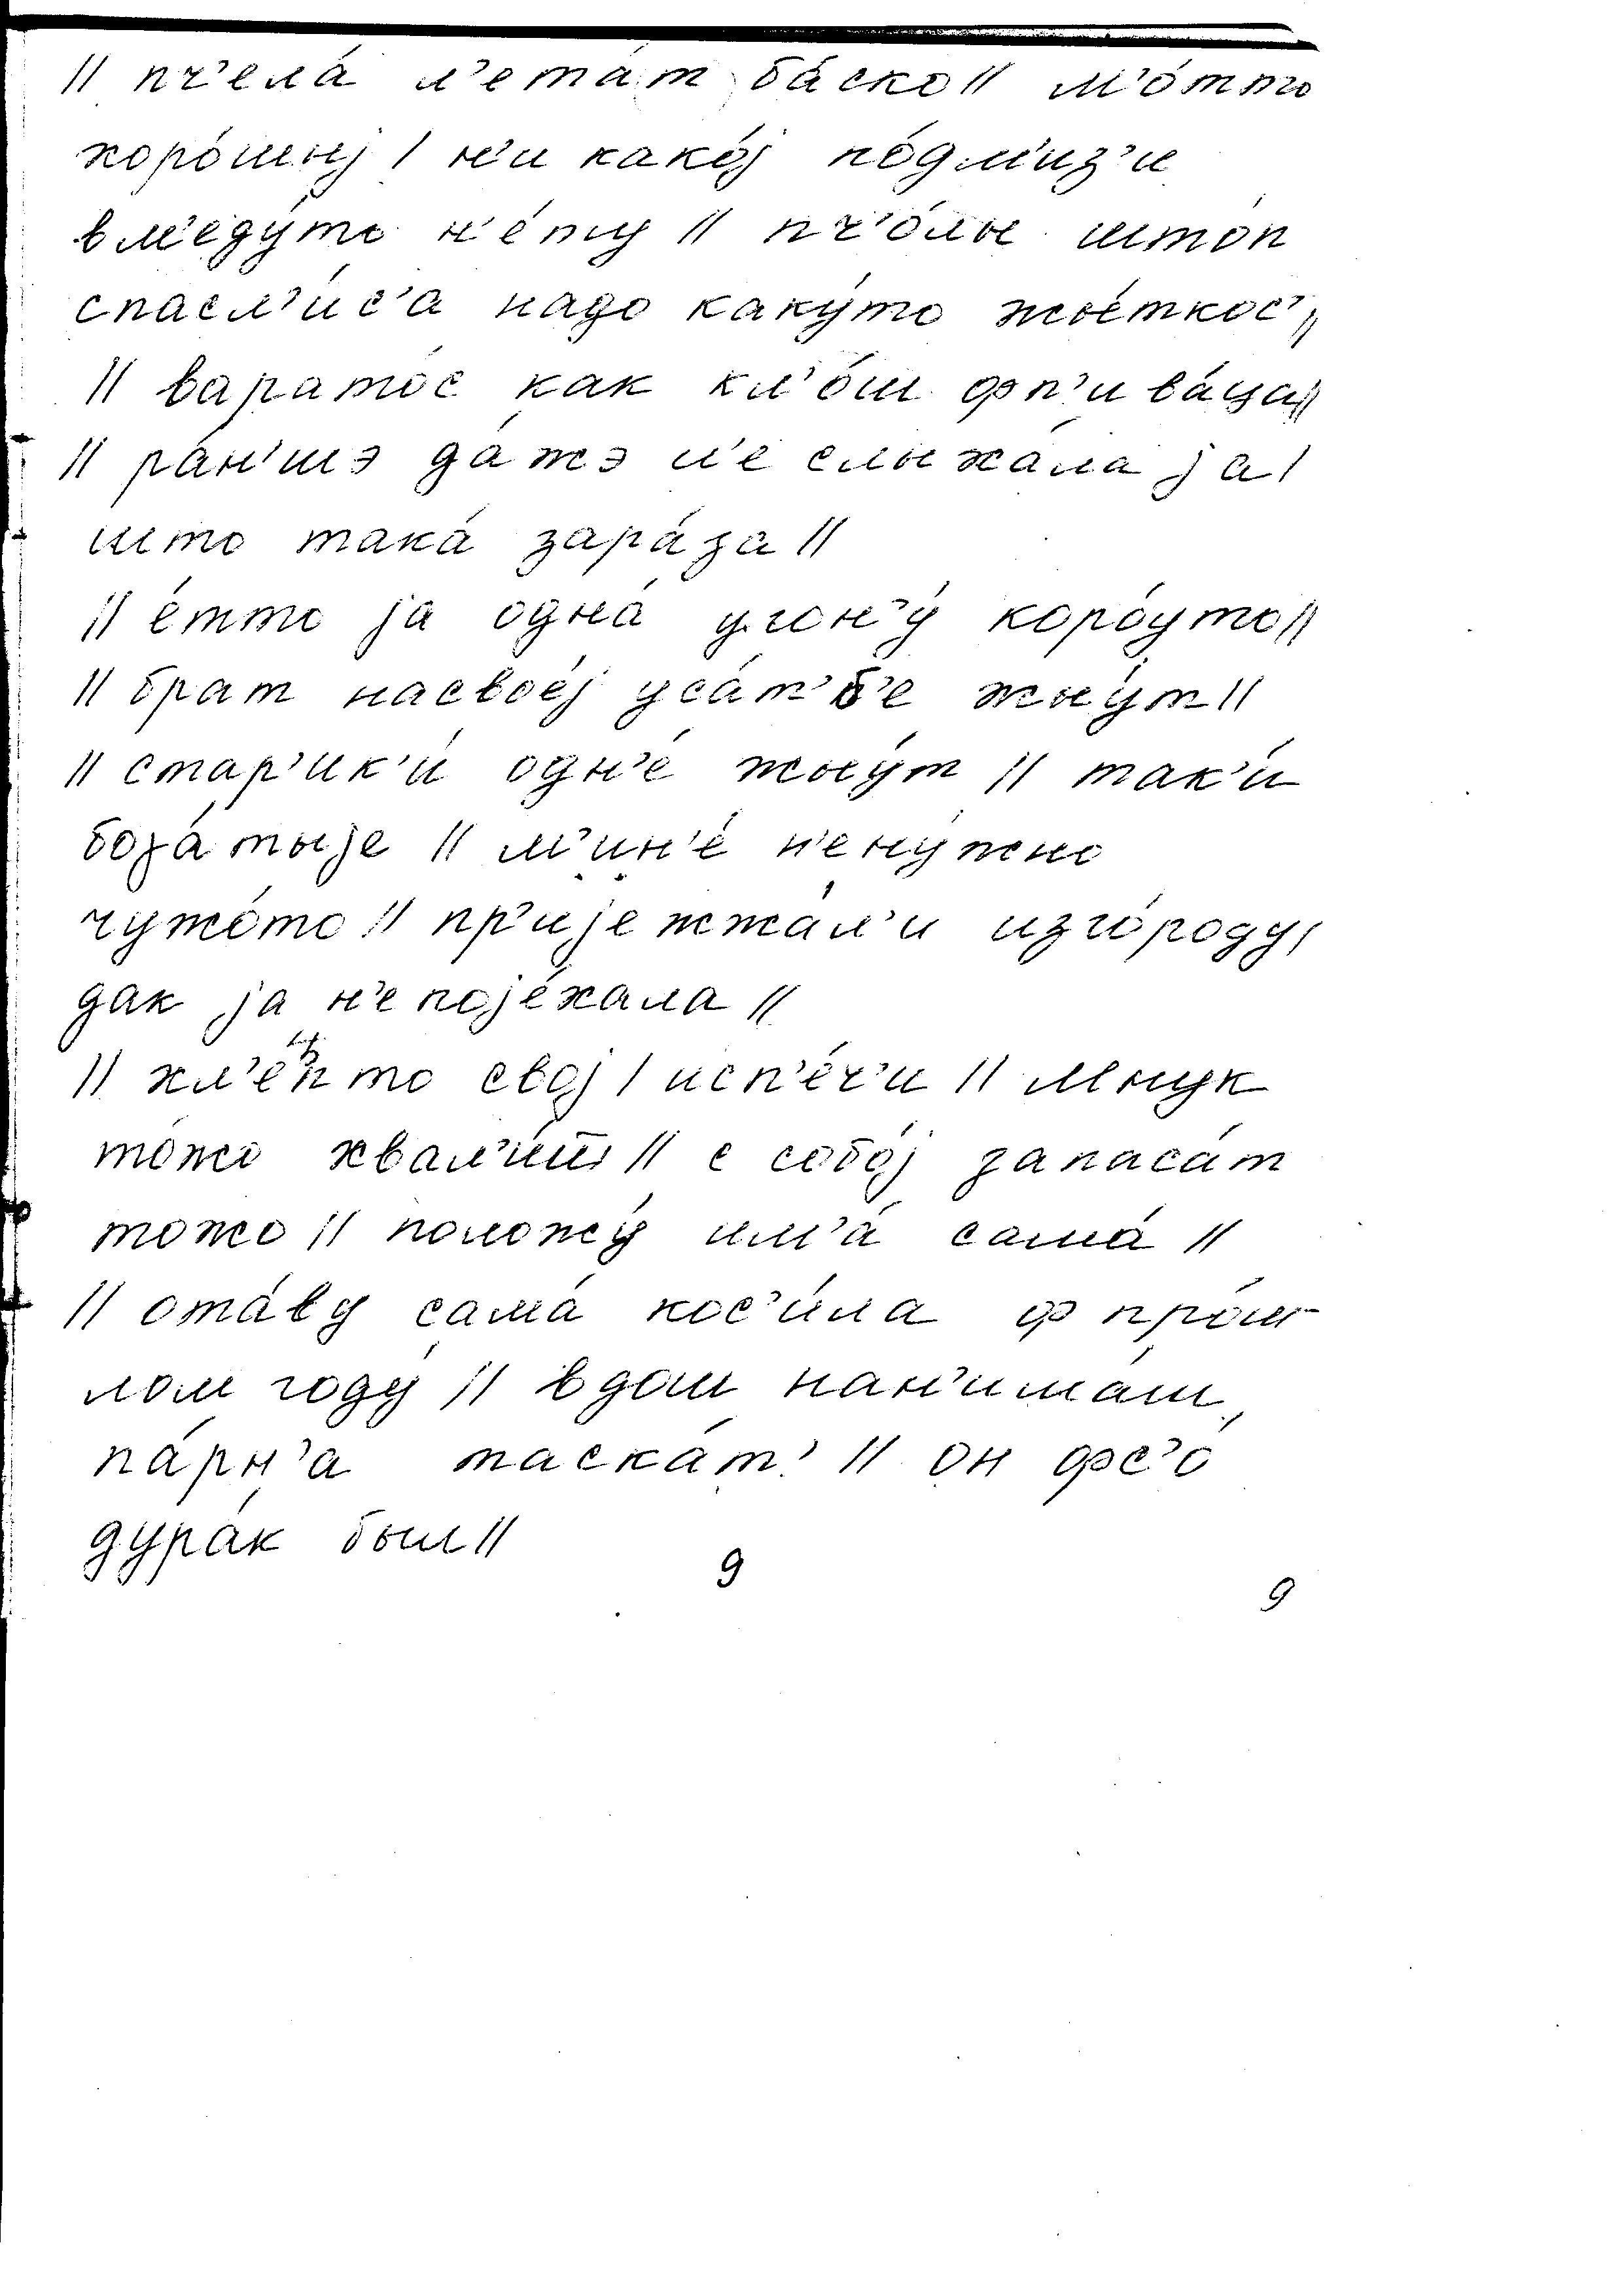 || пч'ела́ л'ета́т ба́ско || м'о́тто
хоро́шыj | н'и како́j по́дм'из'и
вм'еду́то н'е́ту || пч'о́лы што́п
спасл'и́с'а надо каку́то жы́ткос' ||
|| варато́с как кл'о́ш фп'ива́ца ||
|| ра́н'шэ да́жэ н'е слыха́ла jа |
што така́ зара́за ||
|| е́тто jа одна́ угон'у́ коро́уто ||
|| брат насвое́j уса́т'б'е жыу́т ||
|| стар'ик'и́ одн'е́ жыу́т || так'и́
бога́тыjе || м'ин'е́ н'ену́жно
чужо́то || пр'иjежжа́л'и изго́роду |
дак jа н'епоjе́хала ||
|| хл'е́пто свој | исп'е́ч'и || мнук
то́жо хвал'и́т || с собо́j запаса́т
тожо || положу́ им'а́ сама́ ||
|| ота́ву сама́ кос'и́ла ф про́ш-
лом году́ || вдом нан'има́ш
па́рн'а таска́т' || он фс'о
дура́к был ||
9
9